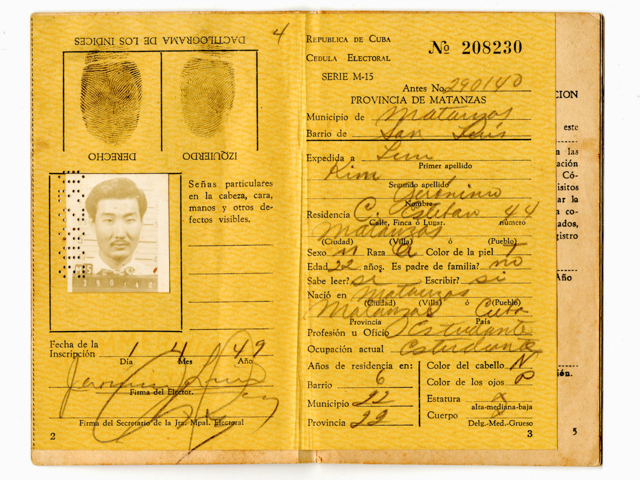 DACTILOGRAMA DE LOS INDICES
4
DERECHO
IZQUIERDO
Señas particulares
en la cabeza, cara,
manos y otros de-
fectos visibles.
290140
Fecha de la
Inscripción 1 4 49
Día Mes Año
Firma del Elector.
Firma del Secretario de la Jta. Mpal. Electoral
2
REPUBLICA DE CUBA
CEDULA ELECTORAL
SERIE M-15
No 208230
Antes No. 290140
PROVINCIA DE MATANZAS
Municipio de Matanzas
Barrio de San Luis
Expedida a Lim
Primer apellido
Kim
Segundo apellido
Jerónimo
Nombre
Residencia C. Esteban 44
Calle, Finca ó Lugar. número
Matanzas
(Ciudad) (Villa) ó (Pueblo)
Sexo M Raza A Color de la piel
Edad 22 años. Es padre de familia? no
Sabe leer? si Escribir? si
Nació en Matanzas
(Ciudad) (Villa) ó (Pueblo)
Matanzas Cuba
Provincia País
Profesión u Oficio Estudiante
Ocupación actual Estudiante
Años de residencia en:
Barrio 6
Municipio 22
Provincia 22
Color del cabello N
Color de los ojos P
Estatura x
alta-mediana-baja
Cuerpo x
Delg.-Med.-Grueso
3
CION
este
a las
ación
Có-
isitos
ar la
a co-
ados,
gistro
Año
ión.
5